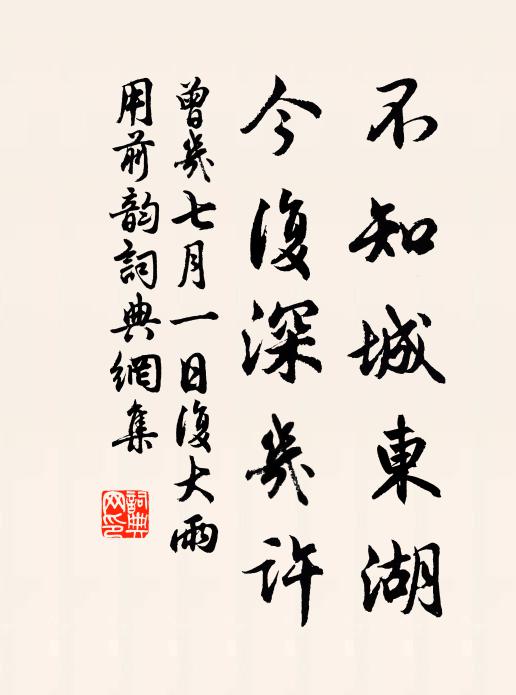 不知城東湖
今復深幾許
曾幾七月一日復大雨
用前韵詞典網集
詞典
网印